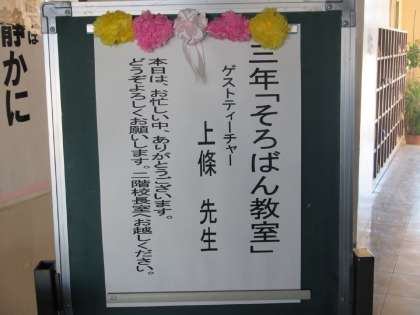 三年「そろばん教室」
ゲストティーチャー
上條 先生
本日は、お忙しい中、ありがとうございます。
どうぞよろしくお願いします。二階校長室へお越しください。
は
静かに